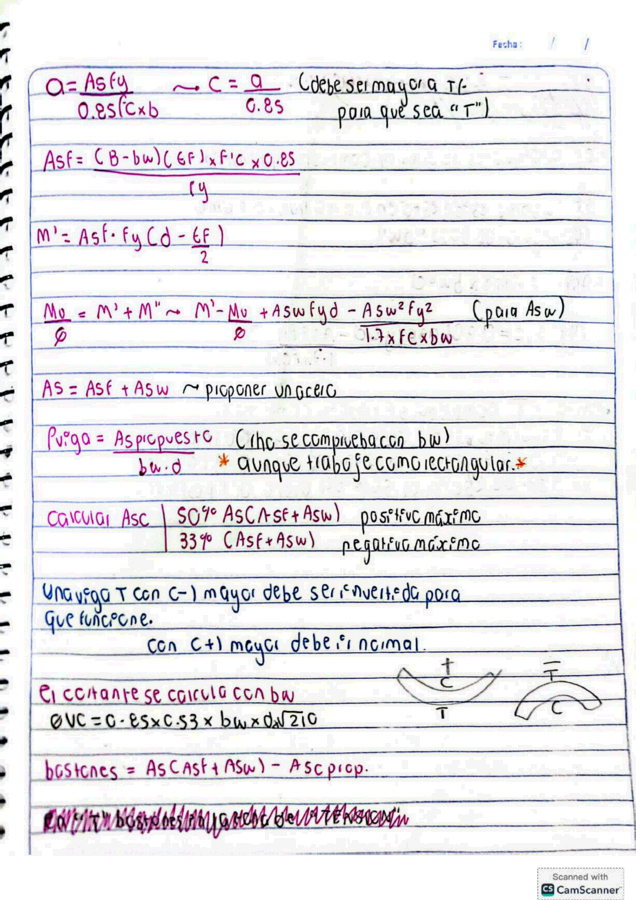 Fecha: / /
a = Asfy / 0.85f'c x b ~ c = a / 0.85 (debe ser mayor a tf
para que sea "T")
Asf = (B-bw)(tF) x F'c x 0.85 / fy
M' = Asf · fy (d - tF/2)
Mu/Ø = M' + M" ~ M' - Mu/Ø + Asw fyd - Asw² fy² / 1.7 x fc x bw (para Asw)
As = Asf + Asw ~ proponer un acero
ρviga = As propuesto / bw · d (rho se comprueba con bw)
* aunque trabaje como rectangular. *
Calcular Asc | 50% As (Asf + Asw) positivo máximo
| 33% (Asf + Asw) negativo máximo
Una viga T con (-) mayor debe ser invertida para
que funcione.
con (+) mayor debe ir normal.
+ C T
- T C
El cortante se calcula con bw
ØVc = 0.85 x 0.53 x bw x d√210
bastones = As (Asf + Asw) - Asc prop.
Scanned with
CS CamScanner